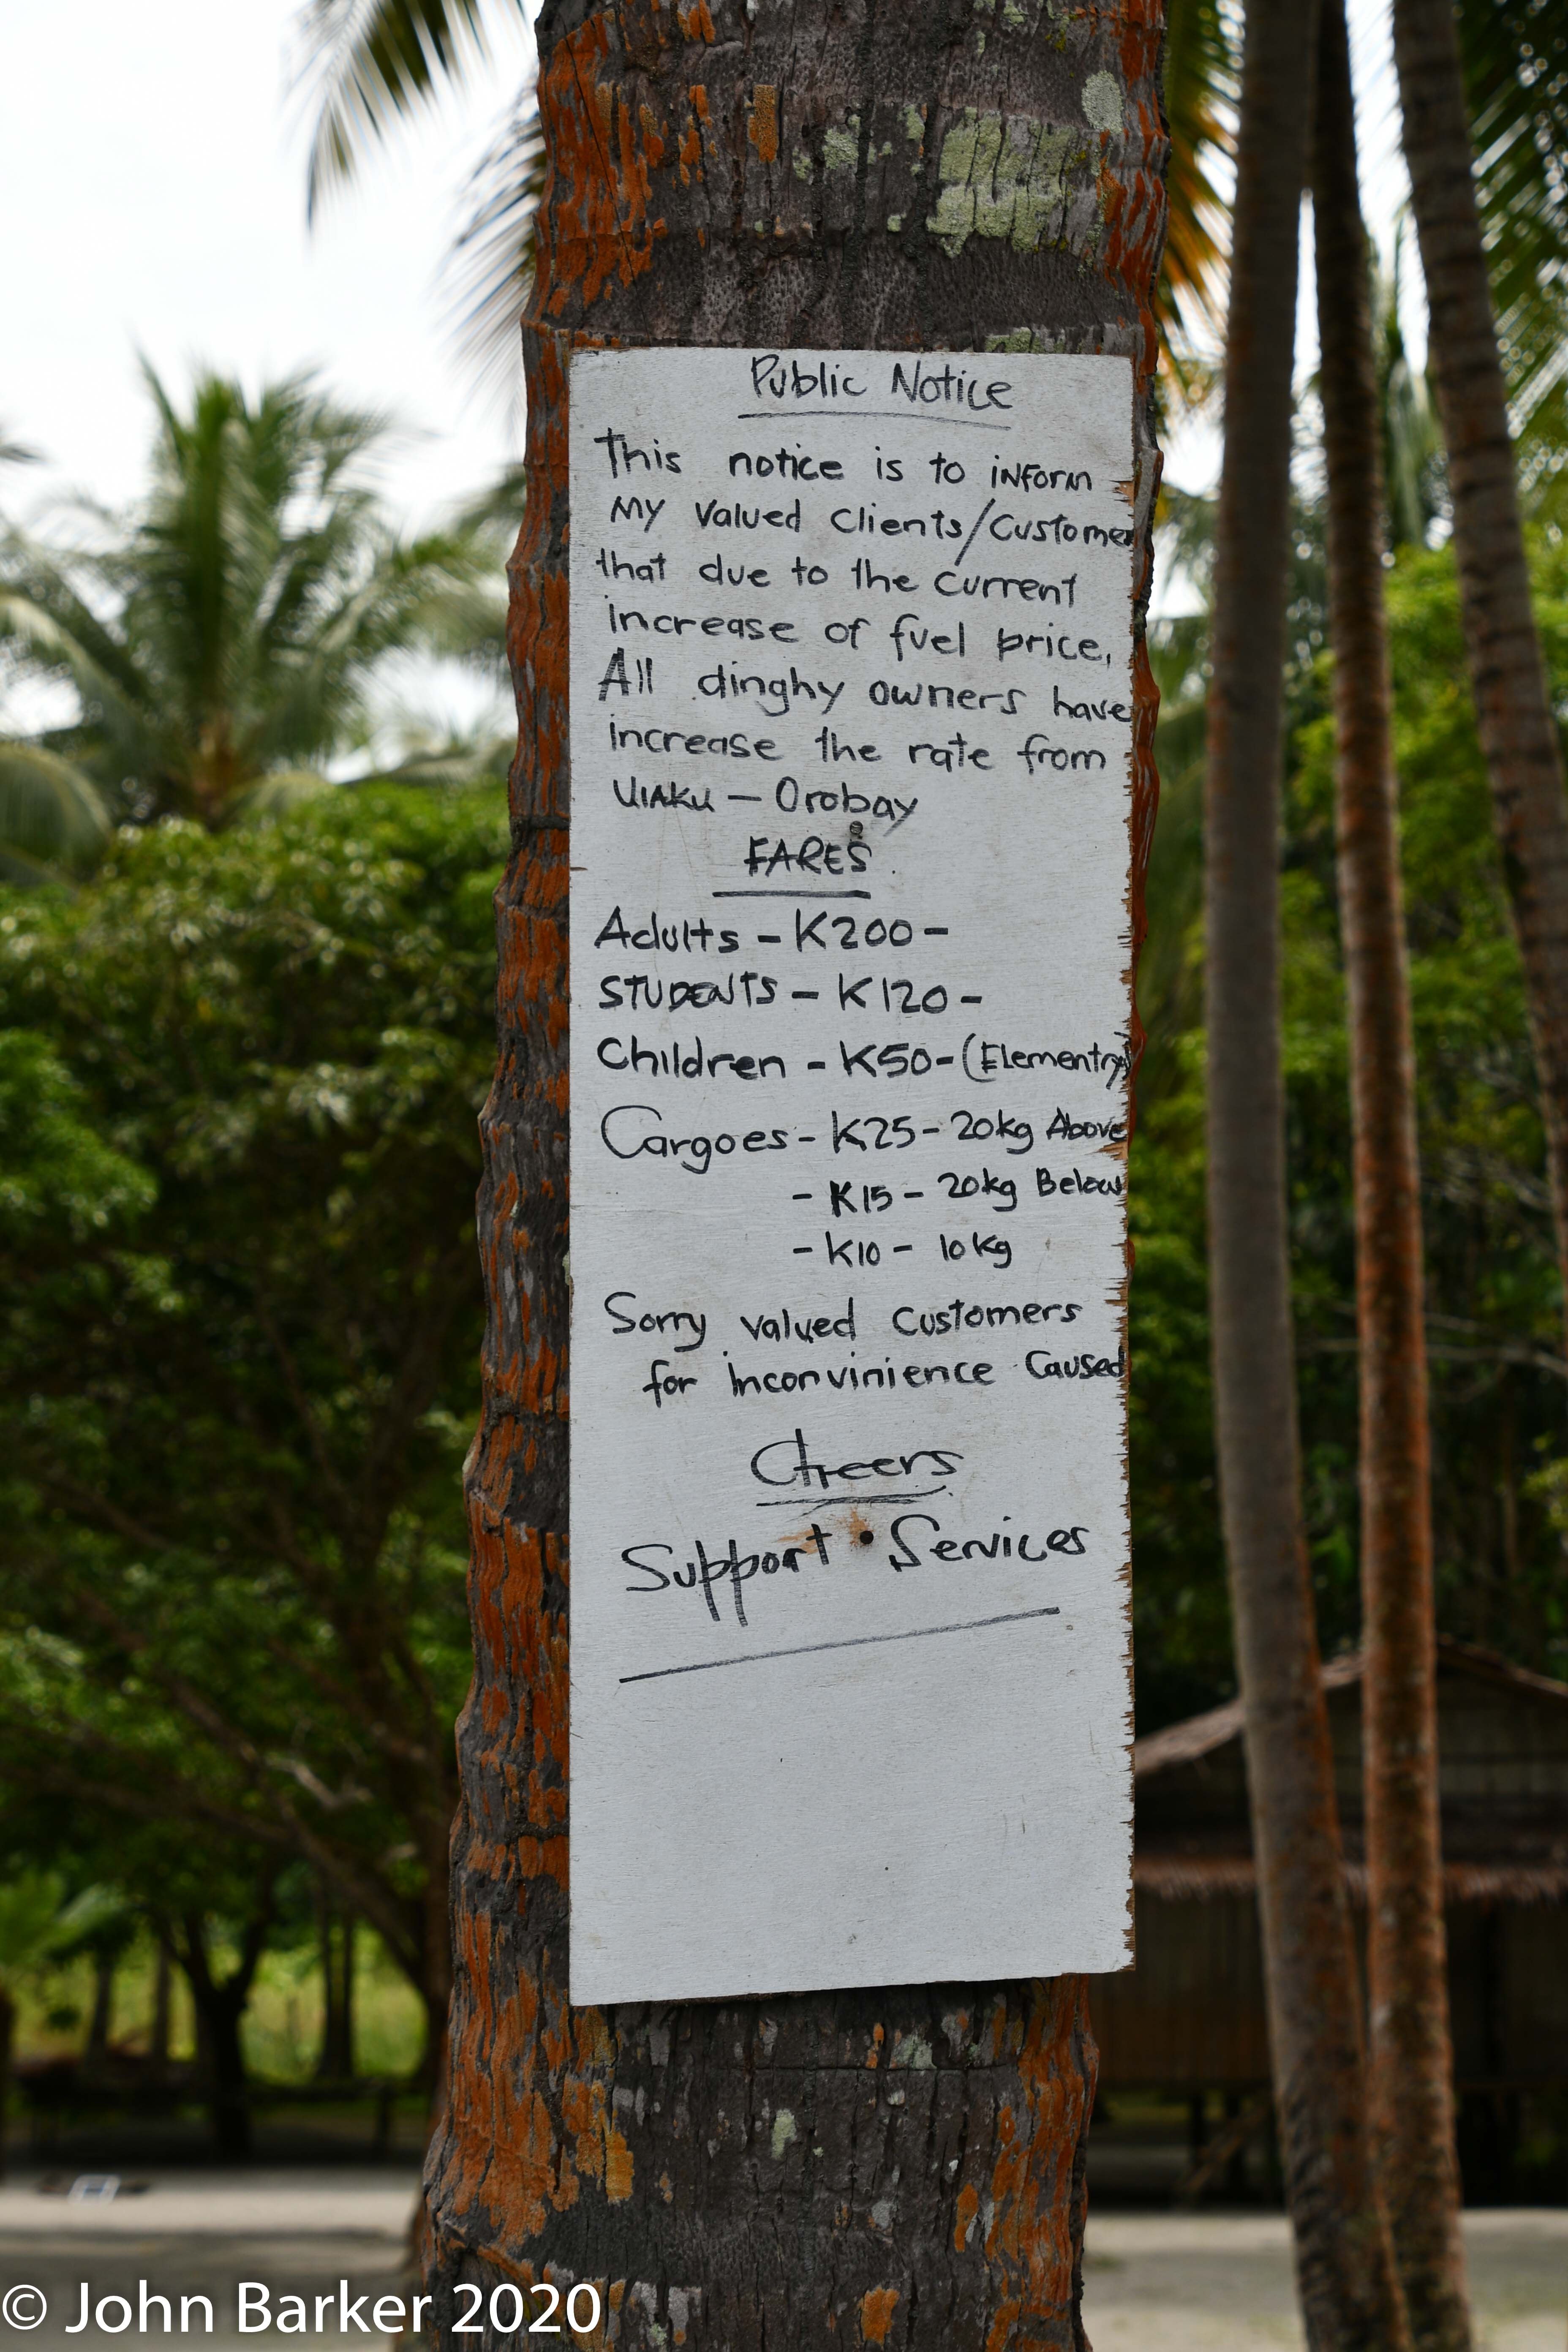 Public Notice
This notice is to inform
My valued Clients/Customer
that due to the current
increase of fuel price,
All dinghy owners have
increase the rate from
UIAKU – Orobay
FARES
Adults – K200 –
STUDENTS – K120 –
Children – K50 – (Elementry)
Cargoes – K25 – 20kg Above
– K15 – 20kg Below
– K10 – 10kg
Sorry valued customers
for inconvinience Caused
Cheers
Support Services
© John Barker 2020